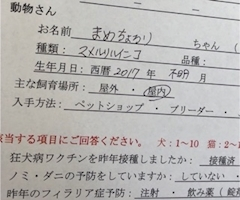 動物さん
お名前 まめちょろり ちゃん（
種類：コメルリルインコ 品種：
生年月日：西暦 2017 年 不明 月
主な飼育場所：屋外・屋内
入手方法：ペットショップ・ブリーダー・
該当する項目にご回答ください。 犬：1～10 猫：2～1
狂犬病ワクチンを昨年接種しましたか：接種済
ノミ・ダニの予防をしていますか：していない・
昨年のフィラリア症予防：注射・飲み薬（錠剤